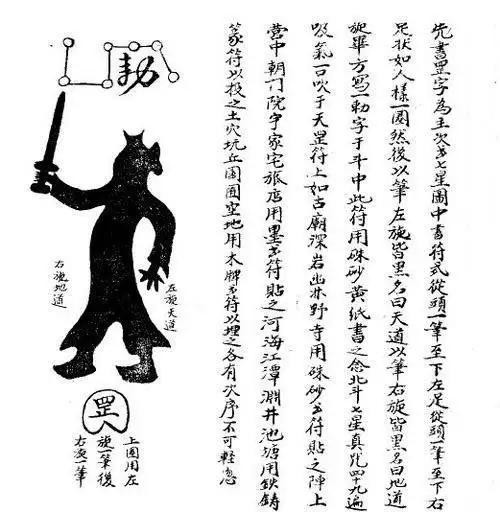 先書罡字為主次書七星圖中書符式從頭一筆至下左足從頭一筆至下右
足狀如人樣一圈然後以筆左旋皆黑名曰天道以筆右旋皆黑名曰地道
旋畢方寫一勅字于斗中此符用硃砂黃紙書之念北斗七星真咒四十九遍
吸氣一口吹于天罡符上如古廟深岩幽林野寺用硃砂書符貼之陣上
營中朝門院宇家宅旅店用墨書符貼之河海江潭淵井池塘用鉄鑄
篆符以投之土穴坑丘園囿空地用木牌書符以埋之各有次序不可輕忽
勅
左旋天道
右旋地道
罡
上圈用左
旋一筆後
右旋一筆